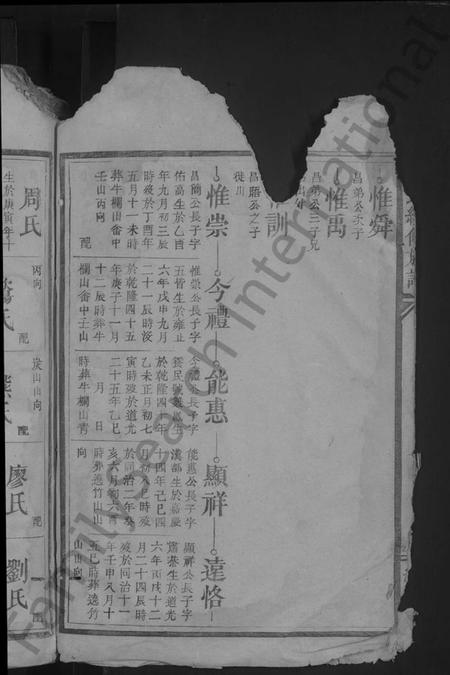 惟舜
昌弟公次子
惟禹
昌弟公三子兄
訓
昌語公之子
徙川
惟崇
昌簡公長子字
佑高生於乙酉
年九月初三辰
時歿於丁酉年
五月十一未時
葬牛欄山畲中
壬山丙向
配
周氏
生於庚寅年十
今禮
惟崇公長子字
五皆生於雍正
六年戊申九月
二十一辰時歿
於乾隆四十五
年庚子十一月
十二辰時葬牛
欄山畲中壬山
丙向
配
氏
能惠
今禮公長子字
於乾隆四年
乙未正月初七
寅時歿於道光
二十五年乙巳
月 日
時葬牛欄山背
山向
配
熊氏
顯祥
能惠公長子字
漢都生於嘉慶
十四年己巳四
月初八巳時歿
於同治二年癸
亥六月初六酉
時葬遶竹山山
向
配
廖氏
達恪
顯祥公長子字
生於道光
六年丙戌十二
月二十四辰時
歿於同治十一
年壬申八月十
五巳時葬遶竹
山山向
配
劉氏
FamilySearch International